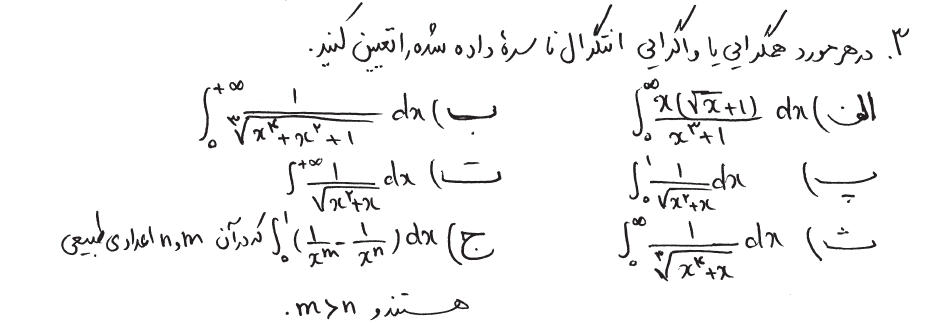 ۳. در هر مورد همگرایی یا واگرایی انتگرال ناسرهٔ داده شده را تعیین کنید.
الف) ∫₀^∞ x(√x+1)/(x^۳+1) dx ب) ∫₀^{+∞} 1/∛(x^۴+x^۲+1) dx
پ) ∫₀^1 1/√(x^۲+x) dx ت) ∫^{+∞} 1/√(x^۲+x) dx
ث) ∫₀^∞ 1/∛(x^۴+x) dx ج) ∫₀^1 (1/x^m - 1/x^n) dx که در آن m و n اعدادی طبیعی
هستند و m>n.